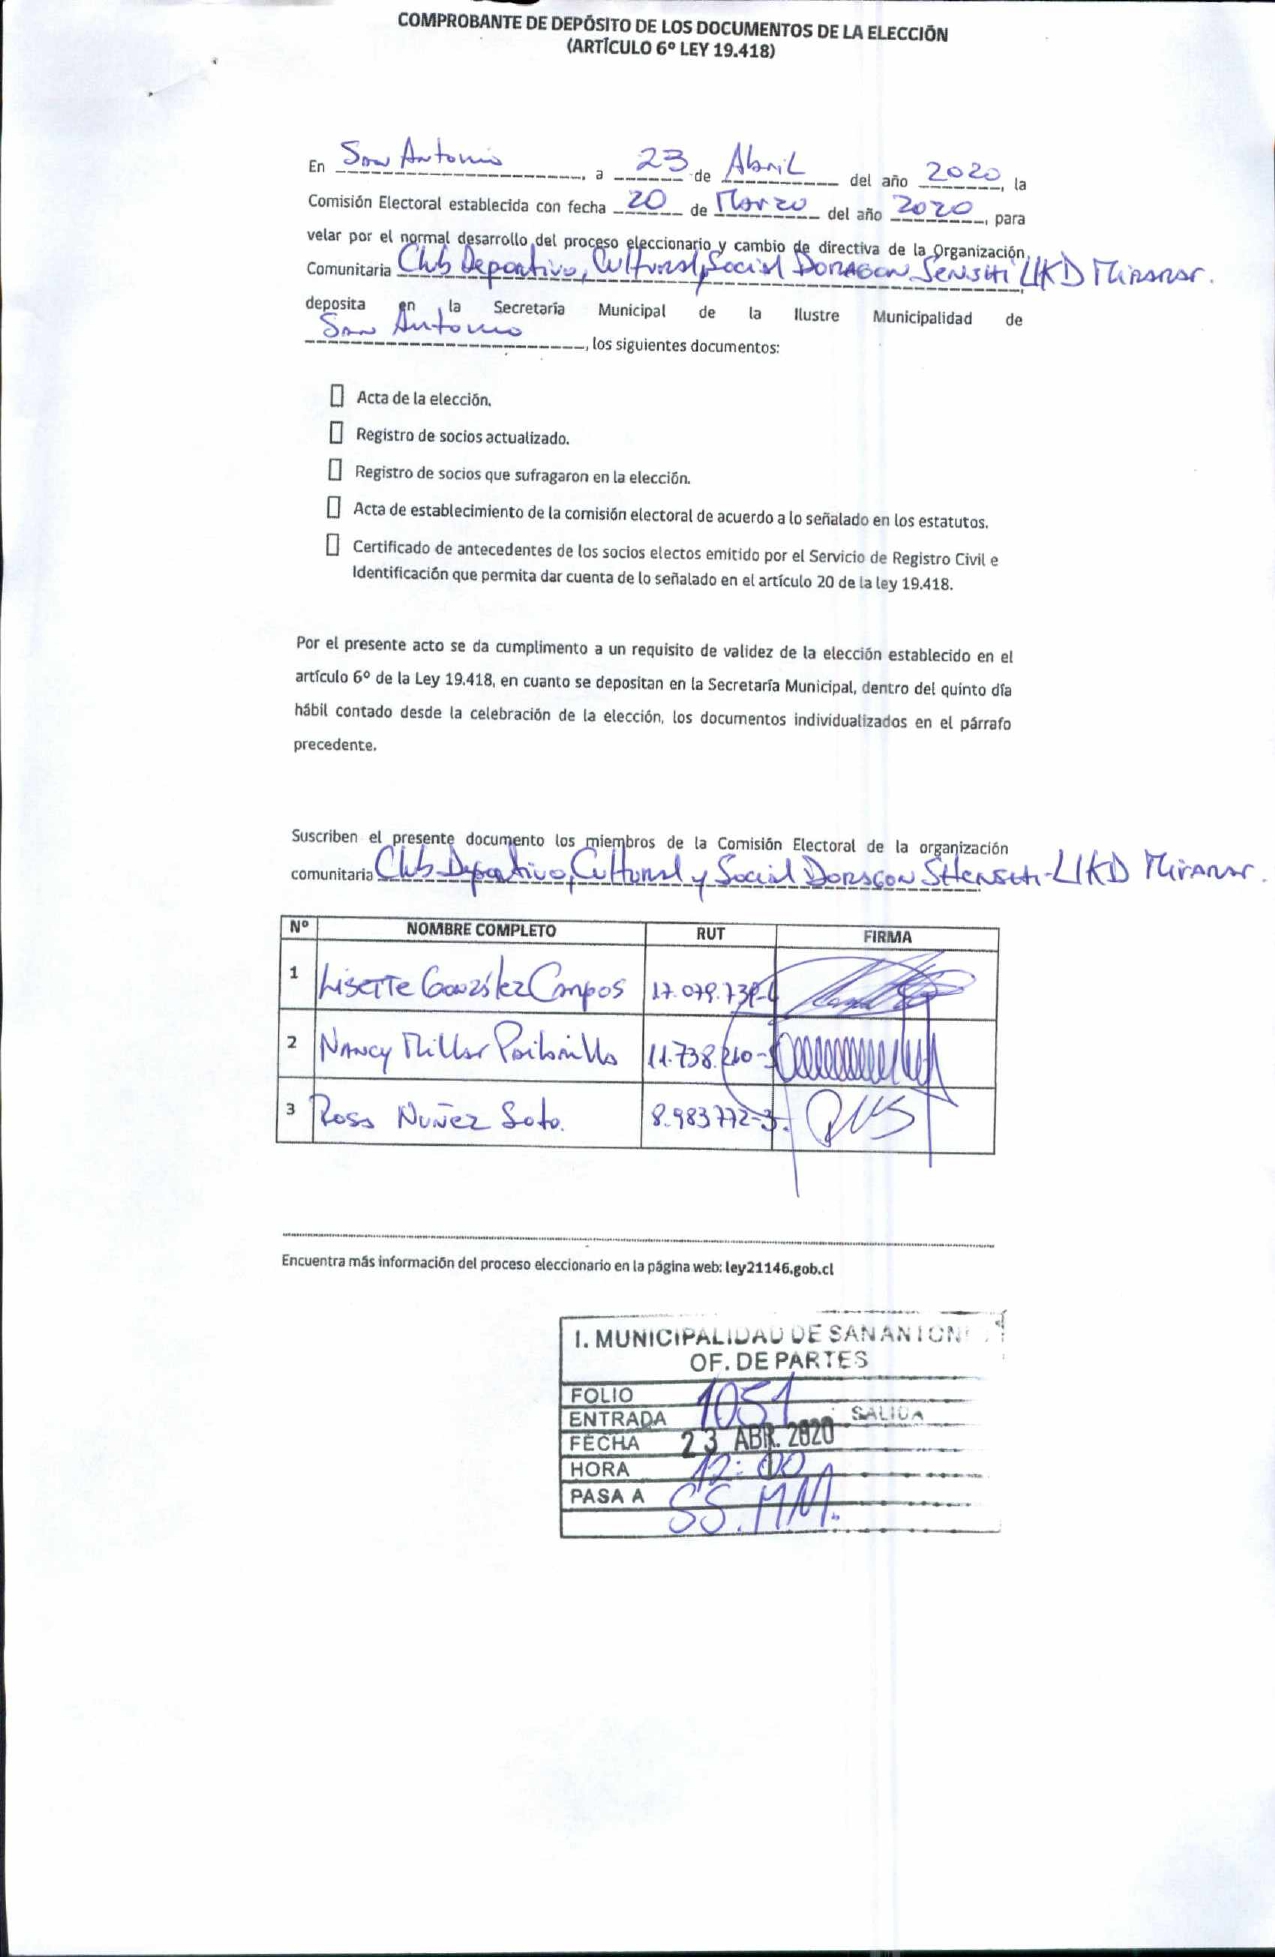 COMPROBANTE DE DEPÓSITO DE LOS DOCUMENTOS DE LA ELECCIÓN
(ARTÍCULO 6º LEY 19.418)
En San Antonio, a 23 de Abril del año 2020, la
Comisión Electoral establecida con fecha 20 de Marzo del año 2020, para
velar por el normal desarrollo del proceso eleccionario y cambio de directiva de la Organización
Comunitaria Club Deportivo, Cultural y Social Doragon Senshi UKD Miramar.
deposita en la Secretaría Municipal de la Ilustre Municipalidad de
San Antonio, los siguientes documentos:
Acta de la elección.
Registro de socios actualizado.
Registro de socios que sufragaron en la elección.
Acta de establecimiento de la comisión electoral de acuerdo a lo señalado en los estatutos.
Certificado de antecedentes de los socios electos emitido por el Servicio de Registro Civil e
Identificación que permita dar cuenta de lo señalado en el artículo 20 de la ley 19.418.
Por el presente acto se da cumplimento a un requisito de validez de la elección establecido en el
artículo 6º de la Ley 19.418, en cuanto se depositan en la Secretaría Municipal, dentro del quinto día
hábil contado desde la celebración de la elección, los documentos individualizados en el párrafo
precedente.
Suscriben el presente documento los miembros de la Comisión Electoral de la organización
comunitaria Club Deportivo, Cultural y Social Doragon Shenshi-UKD Miramar.
Nº NOMBRE COMPLETO RUT FIRMA
1 Lisette González Campos
2 Nancy Millar
3 Rosa Nuñez Soto. 8.983772-3.
Encuentra más información del proceso eleccionario en la página web: ley21146.gob.cl
I. MUNICIPALIDAD DE SAN ANTONIO
OF. DE PARTES
FOLIO
ENTRADA 1051 SALIDA
FECHA 23 ABR. 2020
HORA 12:00
PASA A SS.MM.